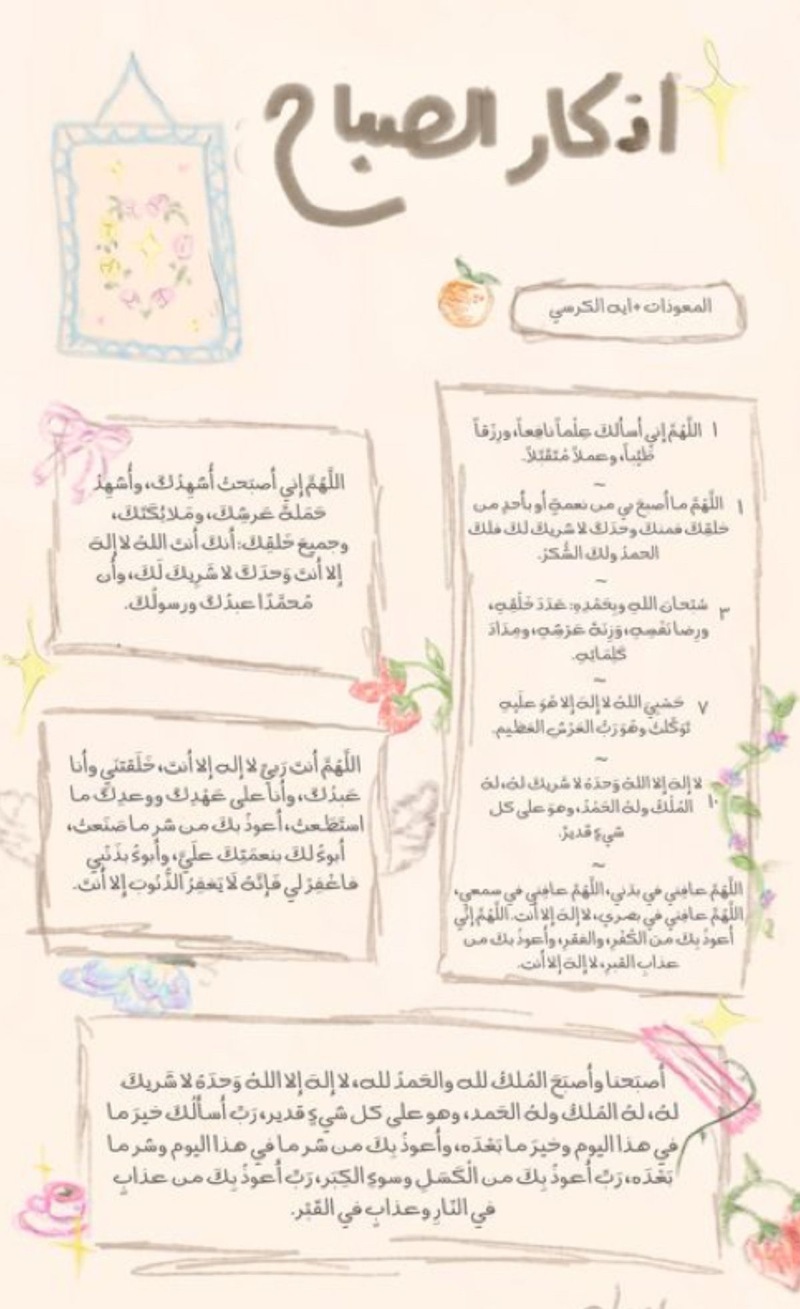 اذكار الصباح
المعوذات + ايه الكرسي
١ اللَّهُمَّ إني أسألك عِلْماً نافِعاً، ورِزْقاً
طَيِّباً، وعملاً مُتَقَبَّلاً.
~
١ اللَّهُمَّ ما أصبحَ بي من نعمةٍ أو بأحدٍ من
خلقِكَ فمنكَ وحدَكَ لا شريكَ لكَ فلكَ
الحمدُ ولكَ الشُّكرُ.
~
٣ سُبْحانَ اللهِ وبِحَمْدِهِ: عَدَدَ خَلْقِهِ،
ورِضا نَفْسِهِ، وَزِنَةَ عَرْشِهِ، ومِدَادَ
كَلِمَاتِهِ.
~
٧ حَسْبِيَ اللهُ لا إلهَ إلا هُوَ عليْهِ
تَوَكَّلتُ وهُوَ رَبُّ العَرْشِ العَظِيم.
~
لا إلهَ إلا اللهُ وَحدَهُ لا شريكَ لهُ، لهُ
١٠ المُلْكُ ولهُ الحَمْدُ، وهوَ على كل
شيءٍ قديرٌ.
~
اللَّهُمَّ عافِني في بدَني، اللَّهُمَّ عافِني في سمعي،
اللَّهُمَّ عافِني في بصري، لا إلهَ إلا أنت. اللَّهُمَّ إنِّي
أعوذُ بِكَ من الكُفْرِ، والفقرِ، وأعوذُ بكَ من
عذابِ القبرِ، لا إلهَ إلا أنتَ.
اللَّهُمَّ إني أصبَحتُ أُشهِدُكَ، وأُشهِدُ
حَمَلةَ عَرشِكَ، ومَلائِكَتَكَ،
وجميعَ خَلقِكَ: أنكَ أنتَ اللهُ لا إلهَ
إلا أنتَ وَحدَكَ لا شَرِيكَ لَكَ، وأن
مُحمَّدًا عبدُكَ ورسولُك.
اللَّهُمَّ أنتَ رَبِيّ لا إلهَ إلا أنتَ، خَلَقتَنِي وأنا
عَبدُكَ، وأنا على عَهْدِكَ ووعدِكَ ما
استَطَعتُ، أعوذُ بكَ من شر ما صَنَعتُ،
أبوءُ لكَ بنعمَتِكَ عليَّ، وأبوءُ بذَنْبِي
فاغْفِرْ لي فَإنَّهُ لَا يَغفِرُ الذُّنُوبَ إلا أنتَ.
أصبَحنا وأصبَحَ المُلكُ لله والحَمدُ لله، لا إلهَ إلا اللهُ وَحدَهُ لا شَريكَ
لهُ، لهُ المُلكُ ولهُ الحَمد، وهو على كل شيءٍ قدير، رَبّ أسألُكَ خيرَ ما
في هذا اليوم وخيرَ ما بَعْدَه، وأعوذُ بِكَ من شر ما في هذا اليوم وشر ما
بَعْدَه، رَبّ أعوذُ بِكَ من الْكَسَلِ وسوءِ الكِبَر، رَبّ أعوذُ بِكَ من عذابٍ
في النّارِ وعذابٍ في القَبْر.